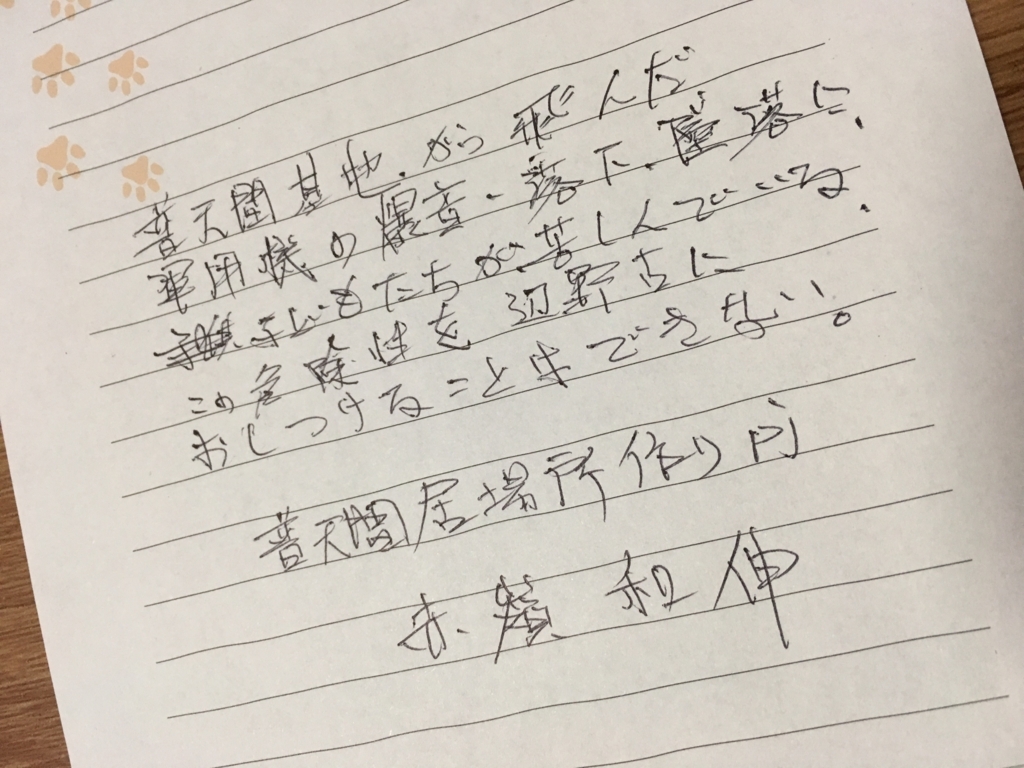 普天間基地から飛んだ
軍用機の騒音、落下、墜落に、
子どもたちが苦しんでいる、
この危険性を辺野古に
おしつけることはできない。
普天間居場所作り
和伸